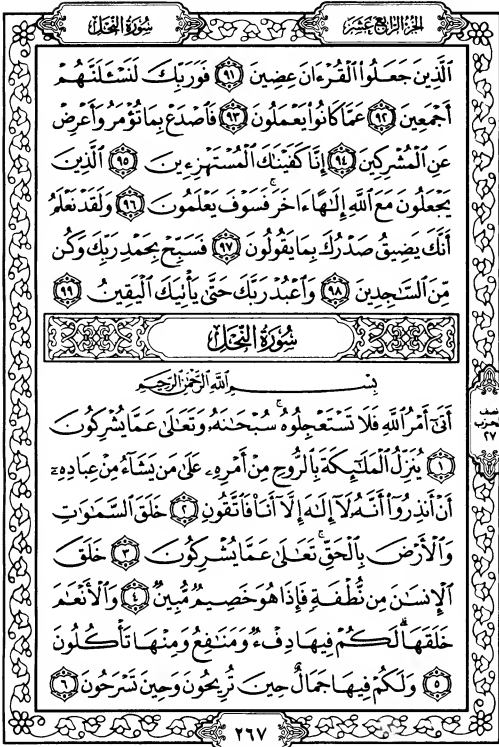 سُورَةُ النَّحْلِ
الجُزءُ الرَّابِعُ عَشَرَ
الَّذِينَ جَعَلُوا الْقُرْءَانَ عِضِينَ ٩١ فَوَرَبِّكَ لَنَسْـَٔلَنَّهُمْ
أَجْمَعِينَ ٩٢ عَمَّا كَانُوا يَعْمَلُونَ ٩٣ فَاصْدَعْ بِمَا تُؤْمَرُ وَأَعْرِضْ
عَنِ الْمُشْرِكِينَ ٩٤ إِنَّا كَفَيْنَٰكَ الْمُسْتَهْزِءِينَ ٩٥ الَّذِينَ
يَجْعَلُونَ مَعَ اللَّهِ إِلَٰهًا ءَاخَرَ ۚ فَسَوْفَ يَعْلَمُونَ ٩٦ وَلَقَدْ نَعْلَمُ
أَنَّكَ يَضِيقُ صَدْرُكَ بِمَا يَقُولُونَ ٩٧ فَسَبِّحْ بِحَمْدِ رَبِّكَ وَكُن
مِّنَ السَّٰجِدِينَ ٩٨ وَاعْبُدْ رَبَّكَ حَتَّىٰ يَأْتِيَكَ الْيَقِينُ ٩٩
سُورَةُ النَّحْلِ
بِسْمِ اللَّهِ الرَّحْمَٰنِ الرَّحِيمِ
أَتَىٰٓ أَمْرُ اللَّهِ فَلَا تَسْتَعْجِلُوهُ ۚ سُبْحَٰنَهُۥ وَتَعَٰلَىٰ عَمَّا يُشْرِكُونَ
١ يُنَزِّلُ الْمَلَٰٓئِكَةَ بِالرُّوحِ مِنْ أَمْرِهِۦ عَلَىٰ مَن يَشَآءُ مِنْ عِبَادِهِۦٓ
أَنْ أَنذِرُوٓا أَنَّهُۥ لَآ إِلَٰهَ إِلَّآ أَنَا۠ فَاتَّقُونِ ٢ خَلَقَ السَّمَٰوَٰتِ
وَالْأَرْضَ بِالْحَقِّ ۚ تَعَٰلَىٰ عَمَّا يُشْرِكُونَ ٣ خَلَقَ
الْإِنسَٰنَ مِن نُّطْفَةٍ فَإِذَا هُوَ خَصِيمٌ مُّبِينٌ ٤ وَالْأَنْعَٰمَ
خَلَقَهَا ۗ لَكُمْ فِيهَا دِفْءٌ وَمَنَٰفِعُ وَمِنْهَا تَأْكُلُونَ
٥ وَلَكُمْ فِيهَا جَمَالٌ حِينَ تُرِيحُونَ وَحِينَ تَسْرَحُونَ ٦
نصف
الحزب
٢٧
٢٦٧